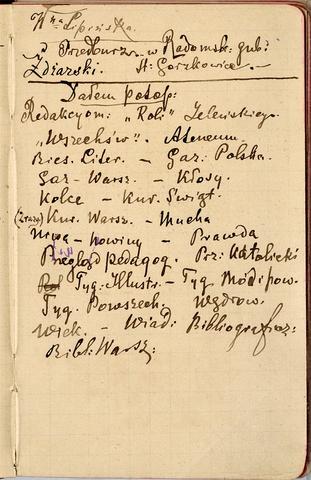 Wna Lipińska.
z Przedborz. w Radomsk: gub:
Zdiarski. St: Gorzkowice.
Dałem potop:
Redakcyom: „Roli” Jeleńskiego.
„Wszechśw”. Ateneum.
Bies. Liter. – Gaz: Polska.
Gaz – Warsz – Kłosy.
Kolce – Kur. Świąt.
Kur. Warsz. – Mucha
Niwa – Nowiny – Prawda
Przegląd pedagog. Prz: Katolicki
Tyg. Illustr – Tyg. Mód i pow.
Tyg. Powszech. Wędrow.
Wiek. – Wiad: Bibliograficz:
Bibl: Warsz: